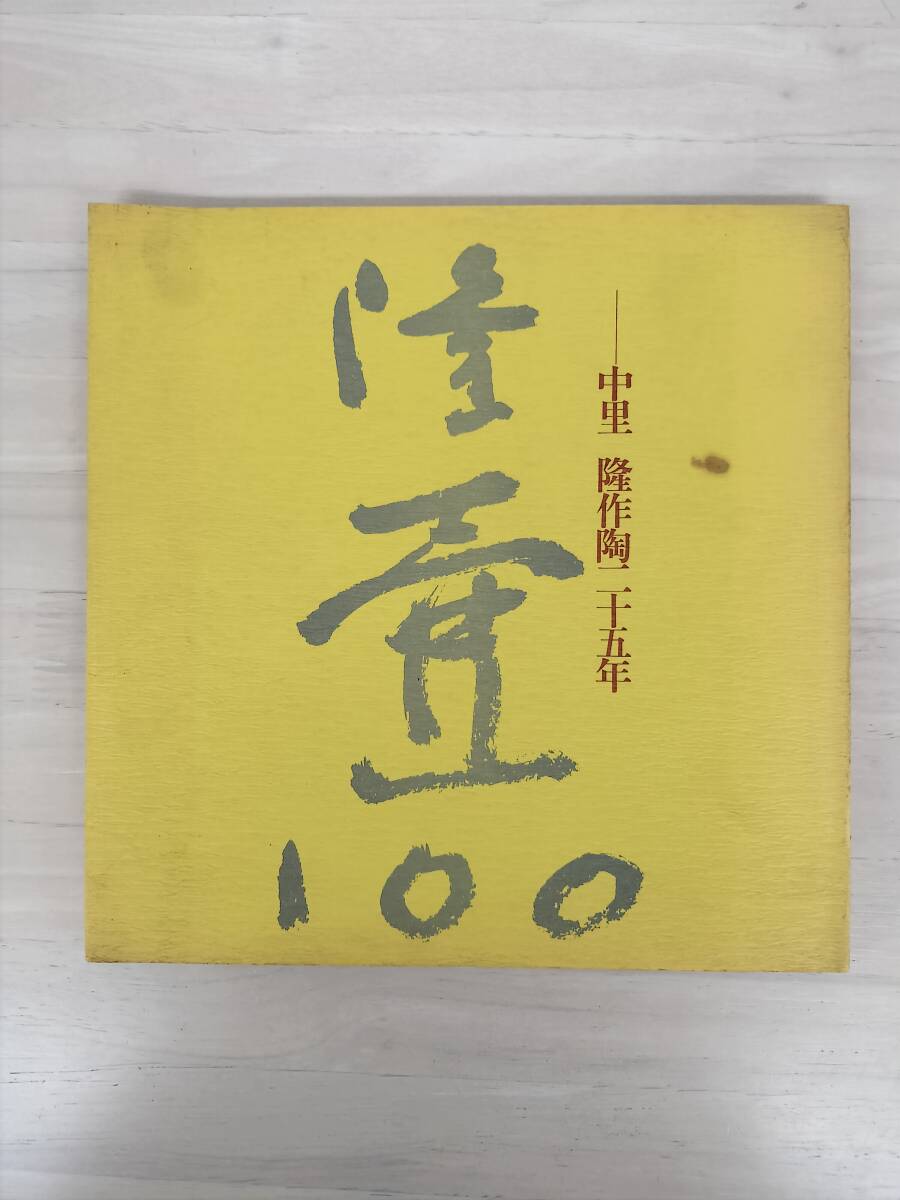 隆壷100
――中里 隆作陶二十五年